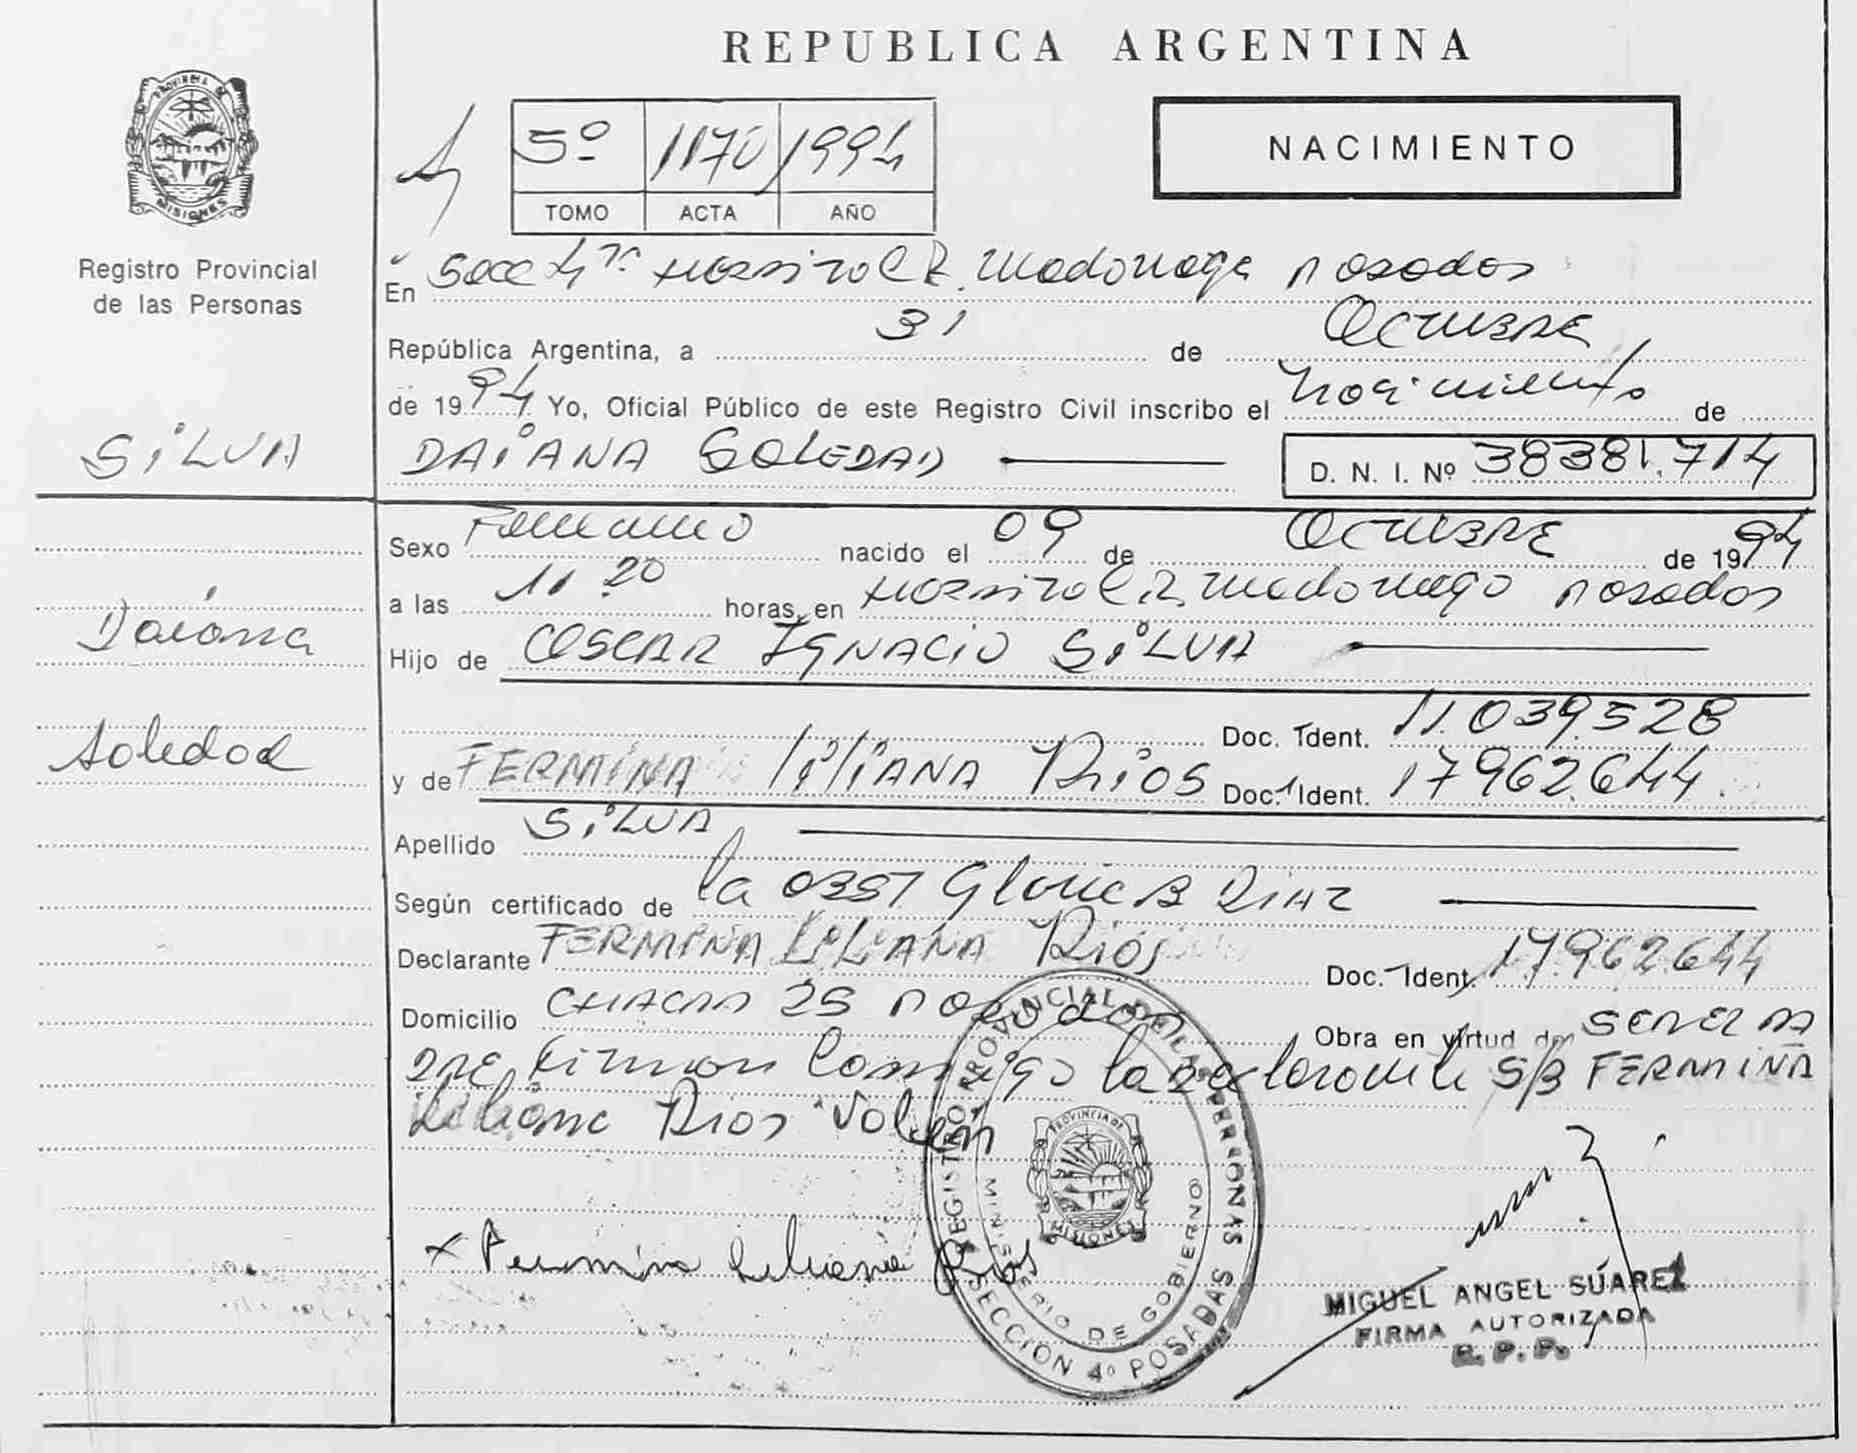 REPUBLICA ARGENTINA
PROVINCIA DE
MISIONES
Registro Provincial
de las Personas
5º 1170 1994
TOMO ACTA AÑO
NACIMIENTO
En Secc 4ta Hospital R. Madariaga Posadas
República Argentina, a 31 de Octubre
de 1994 Yo, Oficial Público de este Registro Civil inscribo el Nacimiento de
SILVA
DAIANA SOLEDAD
D. N. I. Nº 38381.714
Sexo Femenino nacido el 09 de Octubre de 1994
a las 11 20 horas, en Hospital R. Madariaga Posadas
Daiana
Hijo de OSCAR IGNACIO SILVA
Doc. Ident. 11.039.528
Soledad
y de FERMINA liliANA Rios Doc. Ident. 17962.644
Apellido SILVA
Según certificado de la OBST Gloria B DIAZ
Declarante FERMINA LILIANA Rios Doc. Ident. 17.962.644
Domicilio CHACRA 25 Posadas Obra en virtud de
Firman Conmigo la declarante S/B FERMINA
Liliana Rios
REGISTRO PROVINCIAL DE LAS PERSONAS
MINISTERIO DE GOBIERNO
PROVINCIA DE
MISIONES
SECCION 4º POSADAS
x Fermina Liliana Rios
MIGUEL ANGEL SUAREZ
FIRMA AUTORIZADA
R. P. P.